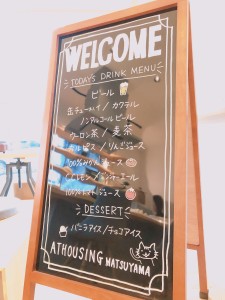 WELCOME
TODAY'S DRINK MENU
ビール
缶チューハイ / カクテル
ノンアルコールビール
ウーロン茶 / 麦茶
カルピス / りんごジュース
100%みかんジュース
ジンジャーエール
DESSERT
バニラアイス / チョコアイス
ATHOUSING MATSUYAMA